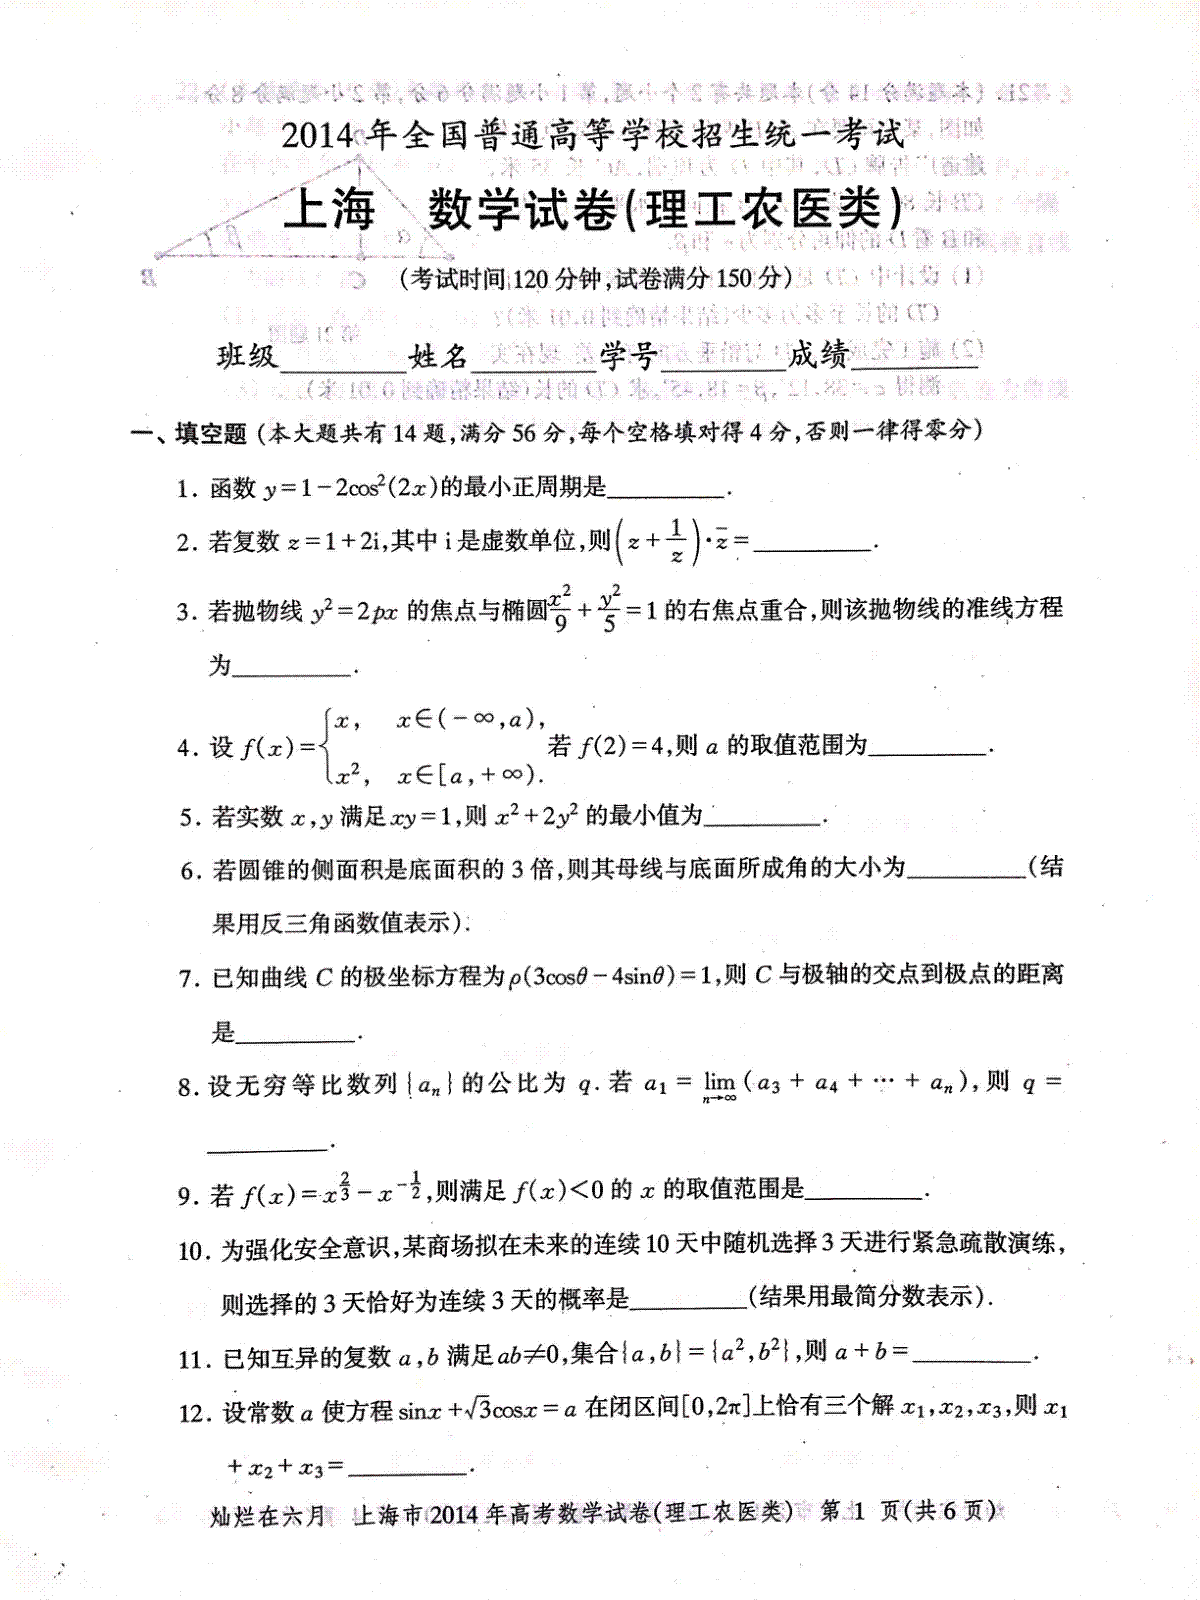 2014年全国普通高等学校招生统一考试
上海 数学试卷(理工农医类)
(考试时间120分钟,试卷满分150分)
班级________姓名________学号________成绩________
一、填空题 (本大题共有14题,满分56分,每个空格填对得4分,否则一律得零分)
1. 函数 y=1-2cos²(2x)的最小正周期是________.
2. 若复数 z=1+2i,其中 i 是虚数单位,则(z+1/z)·z̄=________.
3. 若抛物线 y²=2px 的焦点与椭圆x²/9+y²/5=1 的右焦点重合,则该抛物线的准线方程
为________.
4. 设 f(x)={x, x∈(-∞,a), x², x∈[a,+∞). 若 f(2)=4,则 a 的取值范围为________.
5. 若实数 x,y 满足xy=1,则 x²+2y² 的最小值为________.
6. 若圆锥的侧面积是底面积的 3 倍,则其母线与底面所成角的大小为________(结
果用反三角函数值表示).
7. 已知曲线 C 的极坐标方程为ρ(3cosθ-4sinθ)=1,则 C 与极轴的交点到极点的距离
是________.
8. 设无穷等比数列{aₙ}的公比为 q. 若 a₁ = lim n→∞ (a₃ + a₄ + … + aₙ),则 q =
________.
9. 若 f(x)=x^(2/3)-x^(-1/2),则满足 f(x)<0 的 x 的取值范围是________.
10. 为强化安全意识,某商场拟在未来的连续10天中随机选择3天进行紧急疏散演练,
则选择的3天恰好为连续3天的概率是________(结果用最简分数表示).
11. 已知互异的复数 a,b 满足ab≠0,集合{a,b}={a²,b²},则 a+b=________.
12. 设常数 a 使方程 sinx+√3cosx=a 在闭区间[0,2π]上恰有三个解 x₁,x₂,x₃,则 x₁
+x₂+x₃=________.
灿烂在六月 上海市2014年高考数学试卷(理工农医类) 第 1 页(共6页)